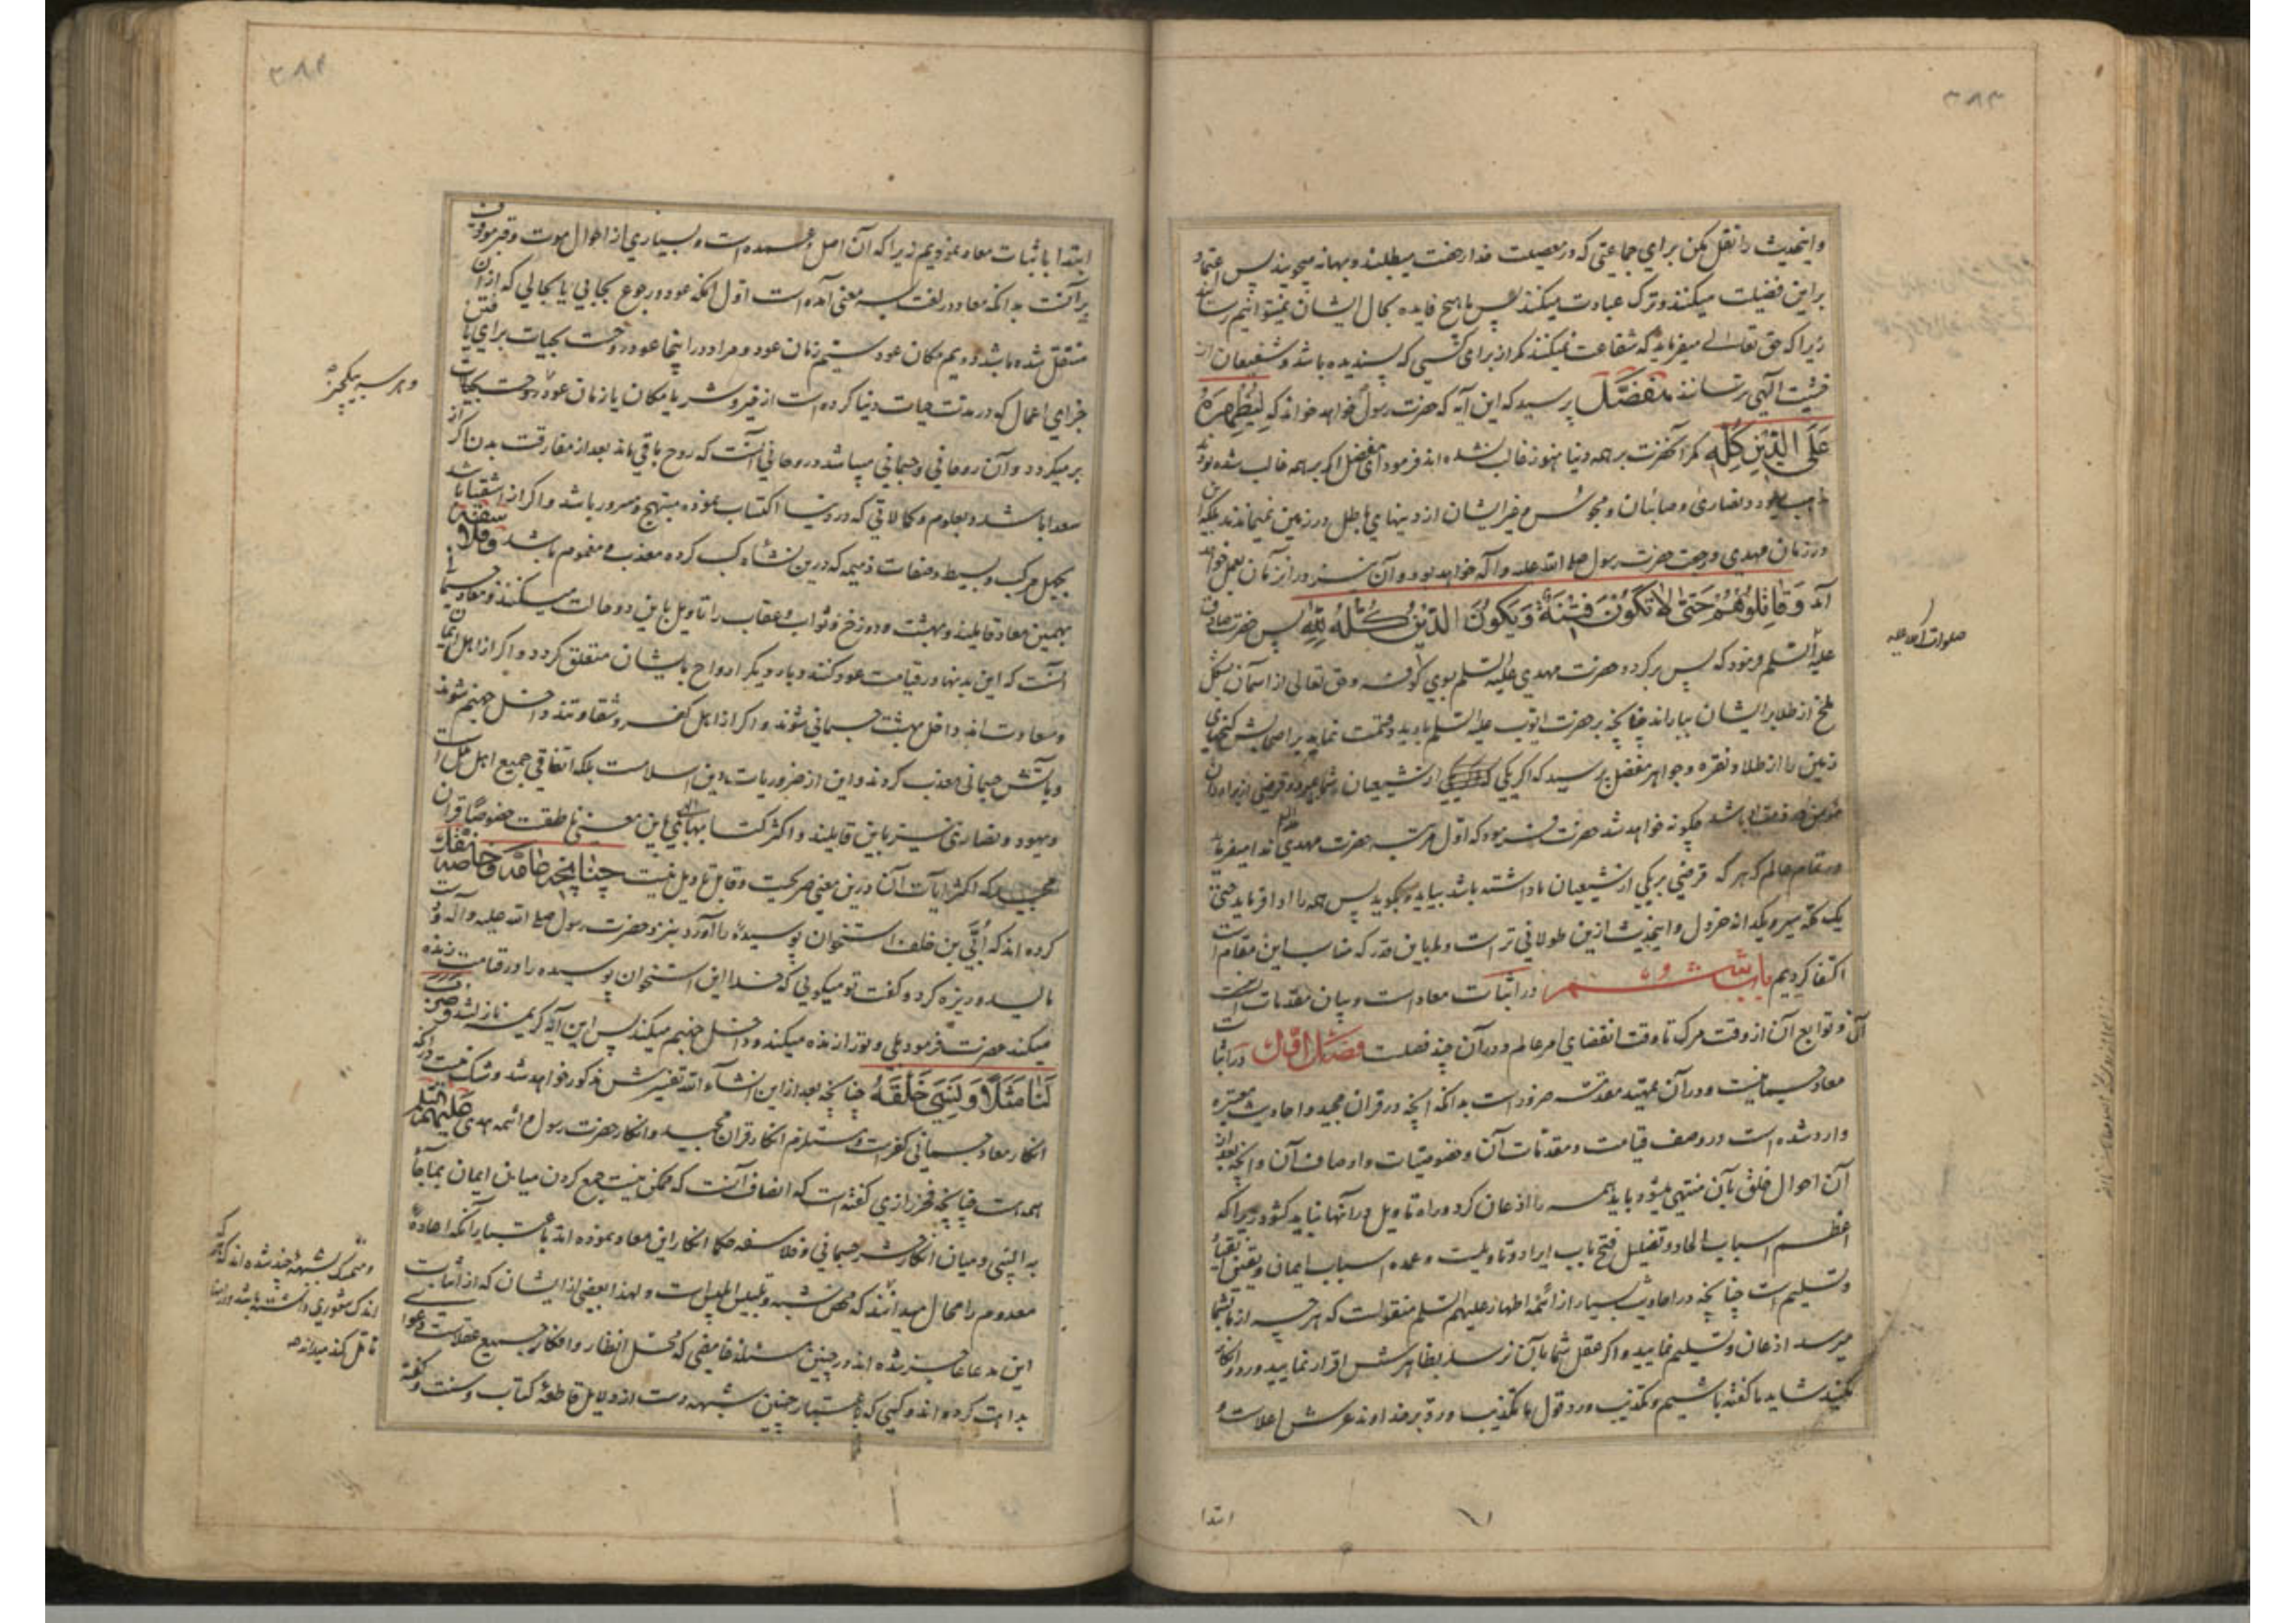 ۳۸۳
و اینحدیث را نقل مکن برای جماعتی که در معصیت خدا رخصت میطلبند و بهانه میجویند پس اعتماد
بر این فضیلت میکنند و ترک عبادت میکنند پس ما هیچ فایده بحال ایشان نمیتوانیم رسانید
زیرا که حق تعالی میفرماید که شفاعت نمیکنند مگر از برای کسی که پسندیده باشد و شفیعان از
خشیت الهی ترسانند مفضل پرسید که این آیه که حضرت رسول خواهد خواند که لِیُظْهِرَهُ
عَلَی الدِّینِ کُلِّهِ مگر آنحضرت بر همه دنیا هنوز غالب نشده اند فرمود ای مفضل اگر بر همه غالب شده بود
مذهب یهود و نصاری و صابئان و مجوس و غیر ایشان از دینهای باطل در زمین نمیماندند بلکه این
در زمان مهدی و رجعت حضرت رسول صلی الله علیه و آله خواهد بود و آن نیز در آنزمان بعمل خواهد
آمد وَ قَاتِلُوهُمْ حَتَّی لَا تَکُونَ فِتْنَةٌ وَ یَکُونَ الدِّینُ کُلُّهُ لِلّٰهِ پس حضرت صادق
صلوات الله علیه
علیه السلم فرمود که پس برگردد حضرت مهدی علیه السلم بسوی کوفه و حق تعالی از آسمان بشکل
ملخ از طلا بر ایشان بباراند چنانچه بر حضرت ایوب علیه السلم بارید و قسمت نماید بر اصحابش گنجهای
زمین را از طلا و نقره و جواهر مفضل پرسید که اگر یکی از شیعیان شما بمیرد و قرضی از برادران
مؤمن در ذمه او باشد چگونه خواهد شد حضرت فرمود که اول مرتبه حضرت مهدی ندا میفرماید
در تمام عالم که هر که قرضی بر یکی از شیعیان ما داشته باشد بیاید و بگوید پس همه را ادا فرماید حتی
یک کله سیر و یکدانه خردل و اینحدیث ازین طولانی تر است و ما باین قدر که مناسب این مقام است
اکتفا کردیم باب ششم در اثبات معاد است و بیان مقدمات
آن و توابع آن از وقت مرگ تا وقت انقضای امر عالم و در آن چند فصلست فصل اول در اثبات
معاد جسمانیست و در آن تمهید مقدمه ضرور است بدانکه آنچه در قران مجید و احادیث معتبره
وارد شده است در وصف قیامت و مقدمات آن و خصوصیات و اوصاف آن و آنچه بعد از
آن احوال خلق بآن منتهی میشود باید همه را اذعان کرد و راه تاویل در آنها نباید گشود زیرا که
اعظم اسباب الحاد و تضلیل فتح باب ایراد و تاویلست و عمده اسباب ایمان و یقین انقیاد
و تسلیم است چنانچه در احادیث بسیار از ائمه اطهار علیهم السلم منقولست که هر چه از ما بشما
میرسد اذعان و تسلیم نمایید و اگر عقل شما بآن نرسد بظاهرش اقرار نمایید و رد و انکار
مکنید شاید ما گفته باشیم و تکذیب و رد قول ما تکذیب و رد بر خداوند عرش اعلاست و
ابتدا
۳۸۴
ابتدا باثبات معاد نمودیم زیرا که آن اصل و عمده است و بسیاری از احوال موت و قبر موقوف
بر آنست بدانکه معاد در لغت بسه معنی آمده است اول آنکه عود و رجوع بجایی یا بحالی که از آن
منتقل شده باشد دویم مکان عود سیم زمان عود و مراد در اینجا عود روحست بحیات برای یافتن
جزای اعمال که در مدت حیات دنیا کرده است از خیر و شر یا مکان یا زمان عود روحست بحیات
و هر سه بیکچیز
بر میگردد و آن روحانی و جسمانی میباشد و روحانی آنست که روح باقی ماند بعد از مفارقت بدن اگر از
سعدا باشد و بعلوم و کمالاتی که در دنیا اکتساب نموده مبتهج و مسرور باشد و اگر از اشقیا باشد
بجهل مرکب و بسیط و صفات ذمیمه که درین نشاه کسب کرده معذب و مغموم باشد و فلاسفه
بهمین معاد قایلند و بهشت و دوزخ و ثواب و عقاب را تاویل باین دو حالت میکنند و معاد جسمانی
آنست که این بدنها در قیامت عود کنند و بار دیگر ارواح بایشان متعلق گردد و اگر از اهل ایمان
و سعادت اند داخل بهشت جسمانی شوند و اگر از اهل کفر و شقاوتند داخل جهنم شوند
و بآتش جسمانی معذب گردند و این از ضروریات دین اسلامست بلکه اتفاقی جمیع اهل ملل است
و یهود و نصاری نیز باین قایلند و اکثر کتابهای الهی باین معنی ناطقست خصوصا قران
مجید که اکثر آیات آن درین معنی صریحست و قابل تاویل نیست چنانچه عامه و خاصه نقل
کرده اند که اُبَیّ بن خلف استخوان پوسیده را آورد بنزد حضرت رسول صلی الله علیه و آله و
مالید و ریزه کرد و گفت تو میگویی که خدا این استخوان پوسیده را در قیامت زنده
میکند حضرت فرمود بلی و تو را زنده میکند و داخل جهنم میکند پس این آیه کریمه نازل شد و ضرب
لَنَا مَثَلًا وَ نَسِیَ خَلْقَهُ چنانچه بعد از این انشاء الله تفسیرش مذکور خواهد شد و شک نیست در آنکه
انکار معاد جسمانی کفر است و مستلزم انکار قران مجید و انکار حضرت رسول و ائمه هدی علیهم السلم
همه است چنانچه فخر رازی گفته است که انصاف آنست که ممکن نیست جمع کردن میان ایمان بما جاء
به النبی و میان انکار حشر جسمانی و فلاسفه حکما انکار این معاد نموده اند باعتبار آنکه اعاده
معدوم را محال میدانند که محض شبهه و تلبیس ابلیس است و لهذا بعضی از ایشان که از اثبات
این مدعا عاجز شده اند در چنین مسئله غامضی که محل انظار و افکار جمیع عقلاست دعوای
بداهت کرده اند و کسی که باعتبار چنین شبهه دست از دلایل قاطعه کتاب و سنت و گفته
و متمسک بشبهه چند شده اند که هر که
اندک شعوری داشته باشد و در آنها
تامل کند میداند